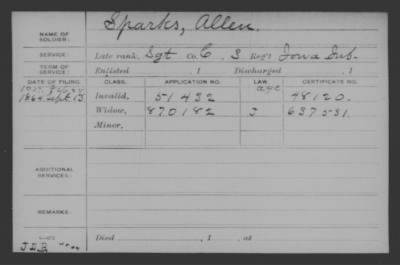 NAME OF SOLDIER: Sparks, Allen.
SERVICE: Late rank, Sgt Co. C, 3 Reg't Iowa Inf.
TERM OF SERVICE: Enlisted , 1 Discharged , 1
DATE OF FILING. CLASS. APPLICATION NO. LAW. CERTIFICATE NO.
1864 Sept. 13 Invalid, 51432 48120.
Widow, 870182 3 637531.
Minor,
ADDITIONAL SERVICES:
REMARKS:
Died , 1 , at